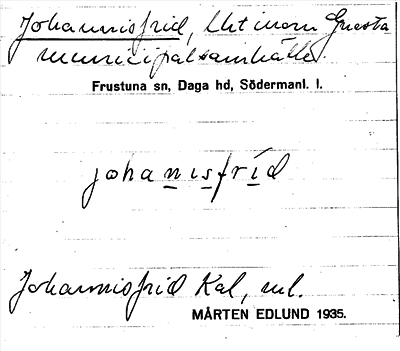 Johannisfrid, lht inom Gnesta
municipalsamhälle.
Frustuna sn, Daga hd, Södermanl. l.
johanisfríd
Johannisfrid Kal, ml.
MÅRTEN EDLUND 1935.